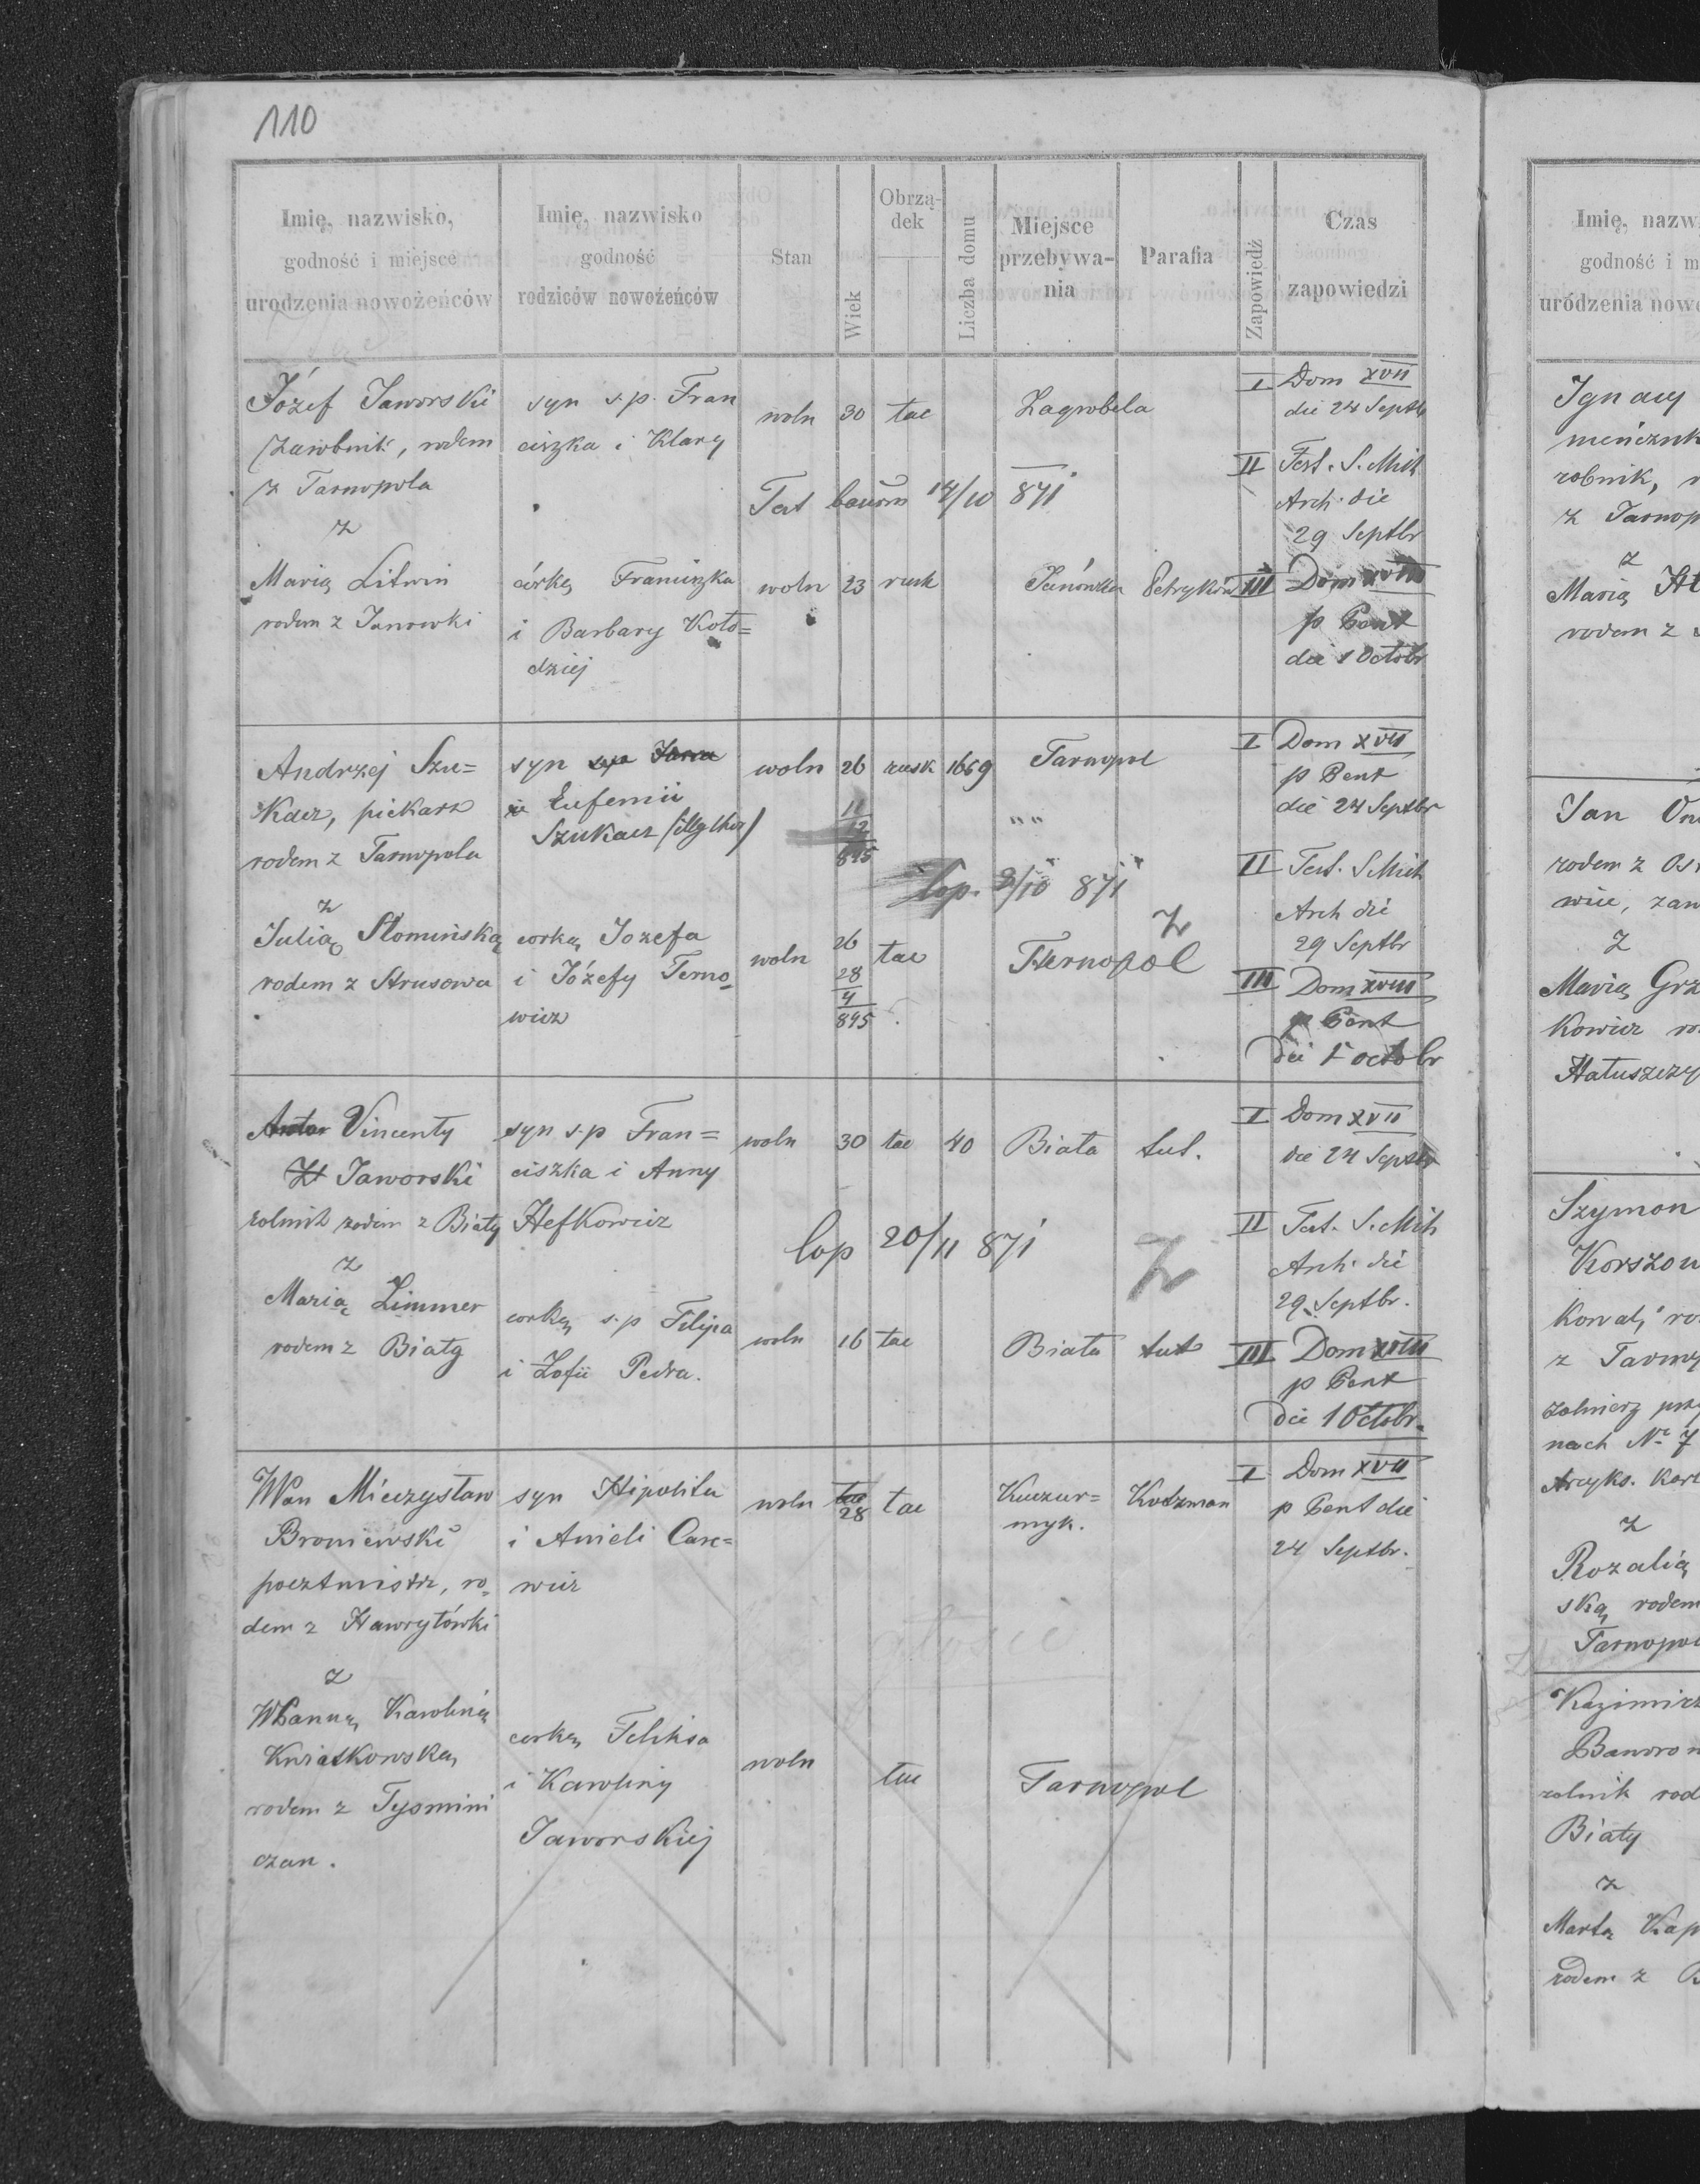 110
Imię, nazwisko,
godność i miejsce
urodzenia nowożeńców
Imię, nazwisko
godność
rodziców nowożeńców
Stan
Wiek
Obrzą-
dek
Liczba domu
Miejsce
przebywa-
nia
Parafia
Zapowiedź
Czas
zapowiedzi
Józef Jaworski
zarobnik, rodem
z Tarnopola
z
Marią Litwin
rodem z Janowki
syn s.p. Fran
ciszka i Klary
córką Franciszka
i Barbary Koło=
dziej
woln 30 łac Zagrobela
Test banom 14/10 871
woln 23 rusk Janówka Petryków
I Dom XVII
die 24 Septb
II Fest. S. Mich
Arch. die
29 Septbr
III Dom XVIII
p Pent
die 1 Octobr
Andrzej Szu=
kacz, piekarz
rodem z Tarnopola
z
Julią Słomińską
rodem z Strusowa
syn
Eufemii
Szukacz
corką Jozefa
i Józefy Terno
wicz
woln 26 rusk 1669 Tarnopol
11
12
845
" "
Cop. 9/10 871
z
woln 26 łac Ternopol
28
4
845
I Dom XVII
p Pent
die 24 Septbr
II Fest. S Mich
Arch die
29 Septbr
III Dom XVIII
p Pent
die 1 octobr
Vincenty
Jaworski
rolnik rodem z Biały
z
Marią Zimmer
rodem z Biały
syn s.p Fran=
ciszka i Anny
Hefkowicz
corką s.p Filipa
i Zofii Pedra.
woln 30 łac 40 Biała tut.
Cop 20/11 871
z
woln 16 łac Biała tut
I Dom XVII
die 24 Septbr
II Fest. S. Mich
Arch. die
29 Septbr.
III Dom XVIII
p Pent
die 1 Octobr.
WPan Mieczysław
Broniewski
pocztmistrz, ro
dem z Hawryłówki
z
WPanną Karoliną
Kwiatkowską
rodem z Tyśmini
czan.
syn Hipolita
i Anieli Carc=
wicz
corką Feliksa
i Karoliny
Jaworskiej
woln łac 28 łac Kuczur=
myk. Kotzman
woln łac Tarnopol
I Dom XVII
p Pent die
24 Septbr.
Imię, nazw
godność i m
urodzenia nowo
Ignacy
robnik,
z Tarnop
z
Marią
rodem z
Jan
rodem z Os
wice, zar
z
Marią Grz
kowicz ro
Hałuszczy
Szymon
Korszow
z Tarnop
żołnierz prz
nach No 7
Arcyks. Kar
z
Rozalią
ską rodem
Tarnopol
Kazimirz
rolnik rod
Biały
z
Marta Kap
rodem z B